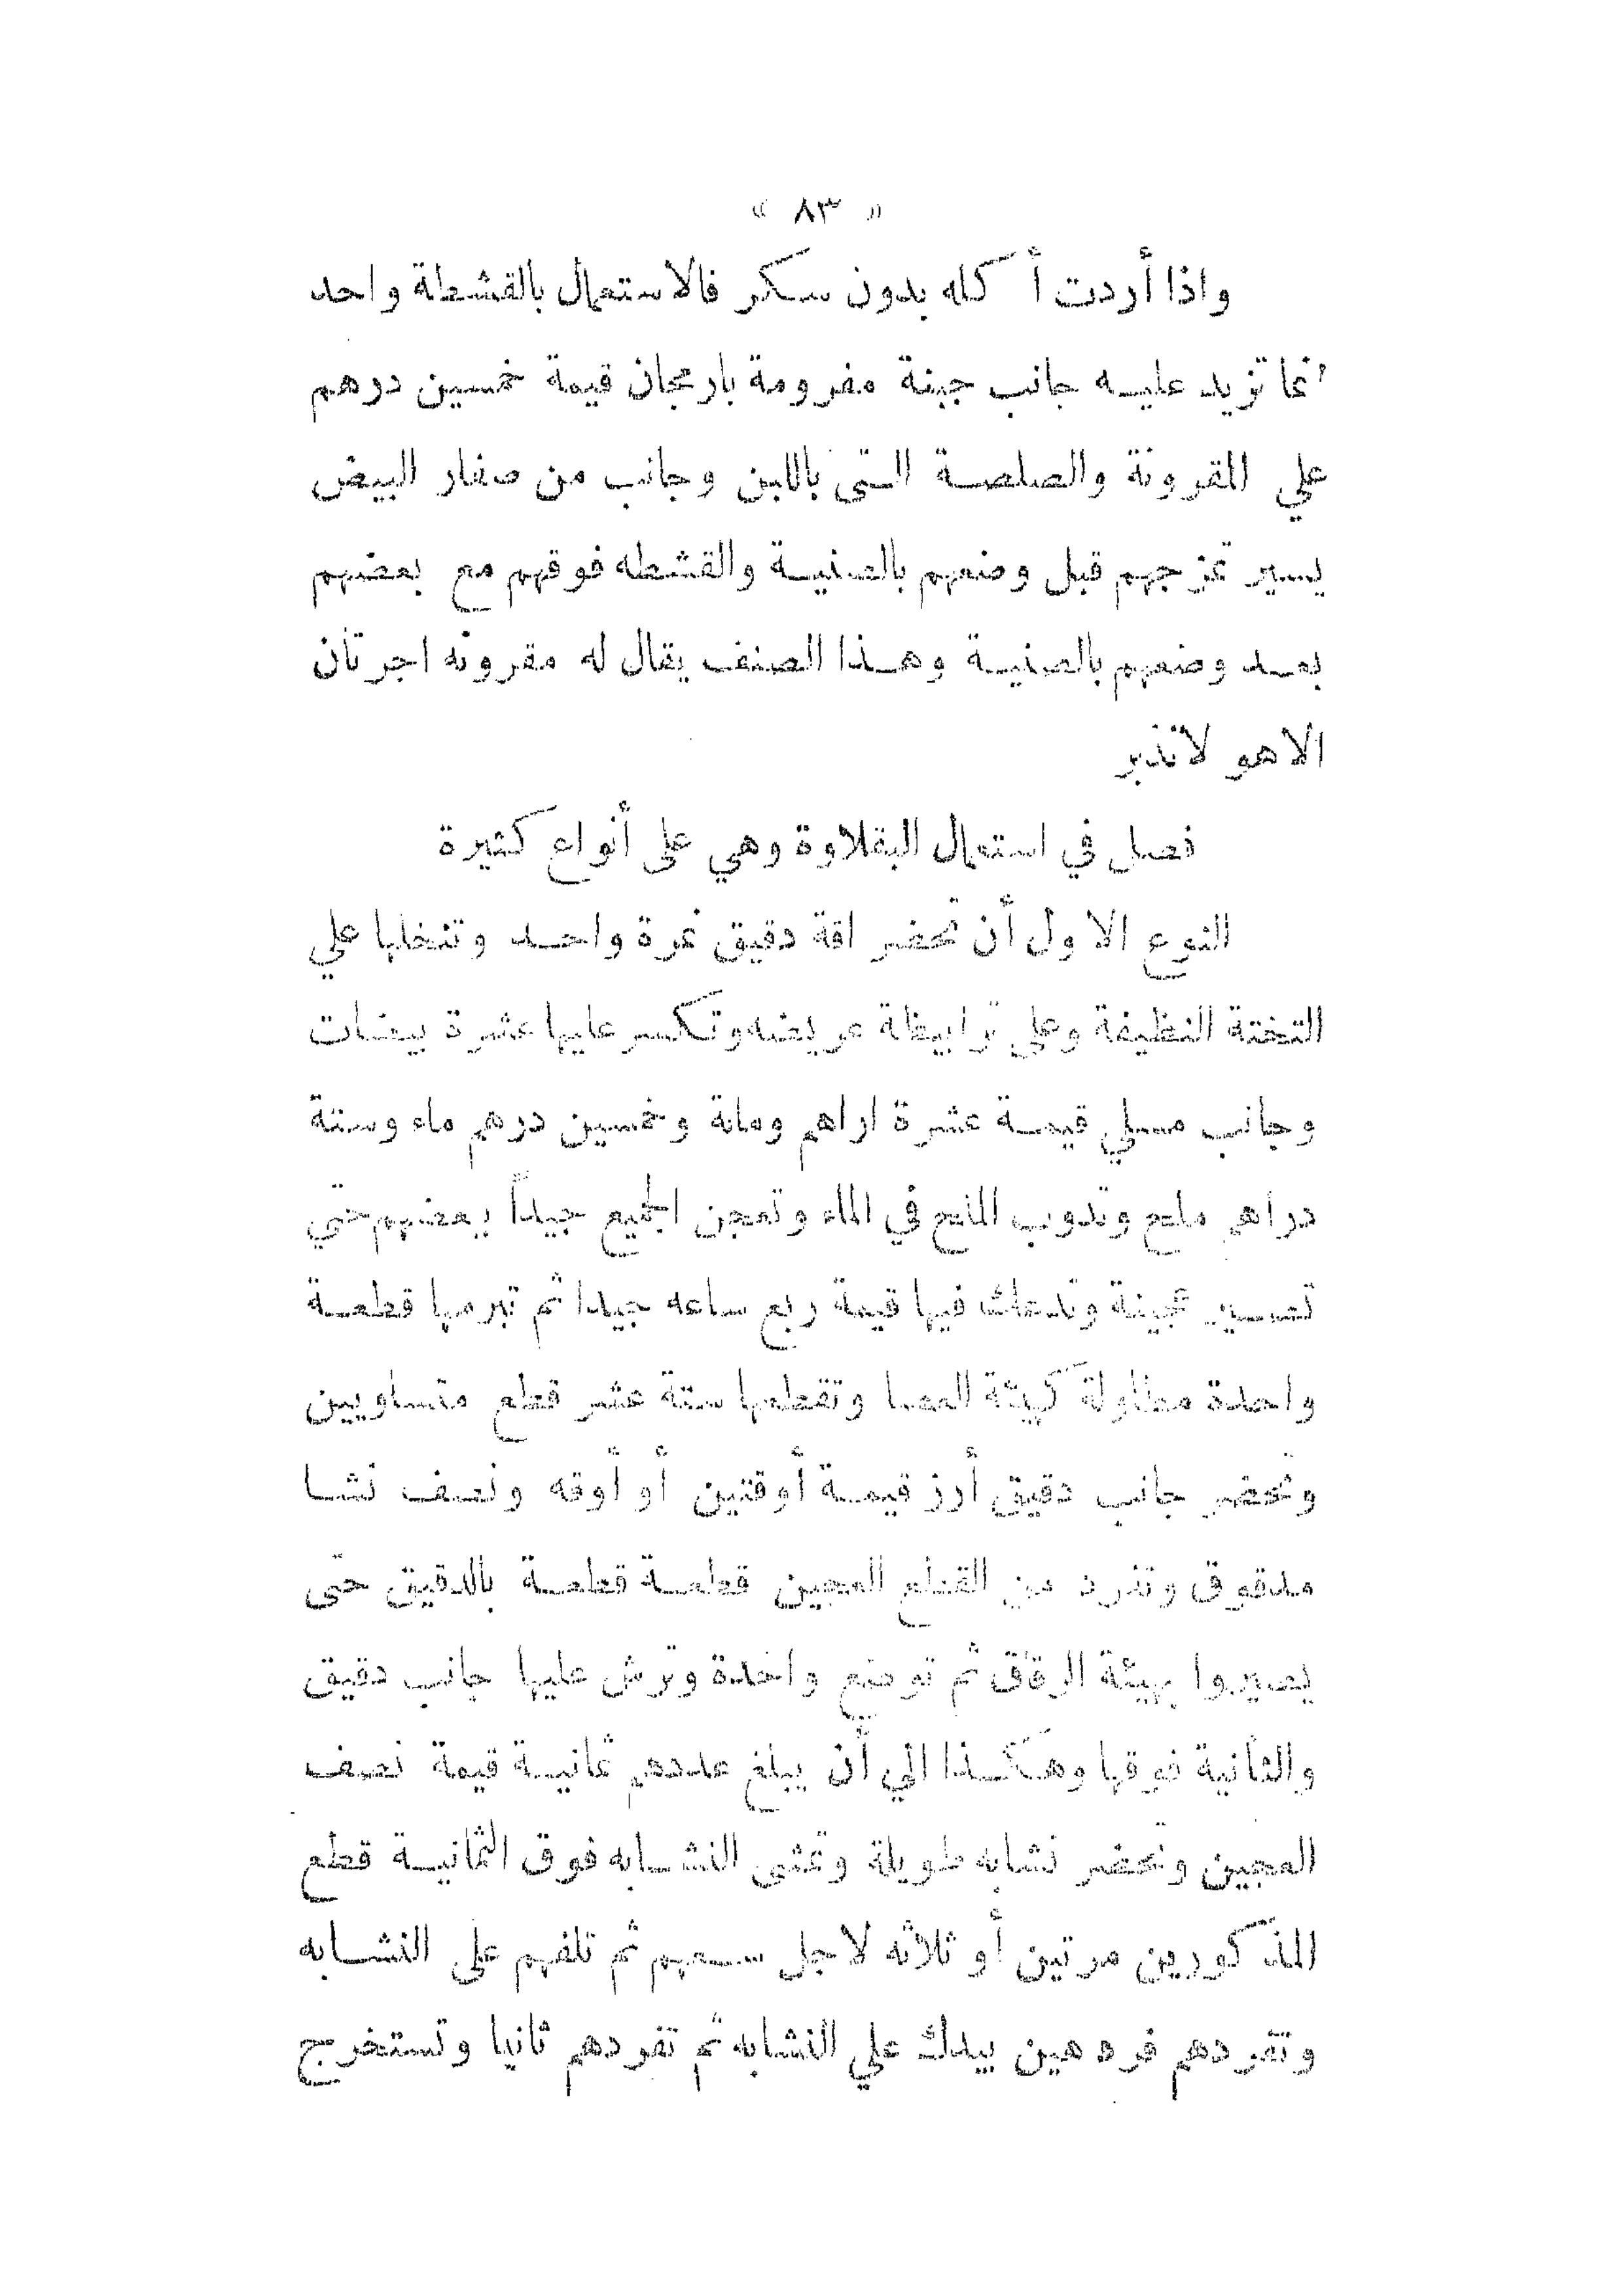 « ٨٣ »
واذا أردت أكله بدون سكر فالاستعمال بالقشطة واحد
انما تزيد عليه جانب جبنة مفرومة بارمجان قيمة خمسين درهم
علي المقرونة والصلصة التى باللبن وجانب من صفار البيض
يسير تمزجهم قبل وضعهم بالصنية والقشطه فوقهم مع بعضهم
بعد وضعهم بالصنية وهذا الصنف يقال له مقرونه اجرتان
الاهو لاتذبر
فصل في استعمال البقلاوة وهي على أنواع كثيرة
النوع الاول أن تحضر اقة دقيق نمرة واحد وتنخلها علي
التختة النظيفة وعلي ترابيظة عريضه وتكسر عليها عشرة بيضات
وجانب مسلي قيمة عشرة اراهم ومائة وخمسين درهم ماء وستة
دراهم ملح وتدوب الملح في الماء وتعجن الجميع جيداً ببعضهم حتي
تصير عجينة وتدعك فيها قيمة ربع ساعه جيدا ثم تبرمها قطعة
واحدة مطاولة كهيئة العصا وتقطعها ستة عشر قطع متساويين
وتحضر جانب دقيق أرز قيمة أوقتين أو أوقه ونصف نشا
مدقوق وتفرد من القطع العجين قطعة قطعة بالدقيق حتى
يصيروا بهيئة الرقاق ثم توضع واحدة وترش عليها جانب دقيق
والثانية فوقها وهكذا الي أن يبلغ عددهم ثمانية قيمة نصف
العجين وتحضر نشابه طويلة وتمشى النشابه فوق الثمانية قطع
المذكورين مرتين أو ثلاثه لاجل سعهم ثم تلفهم على النشابه
وتفردهم فرد هين بيدك علي النشابه ثم تفردهم ثانيا وتستخرج